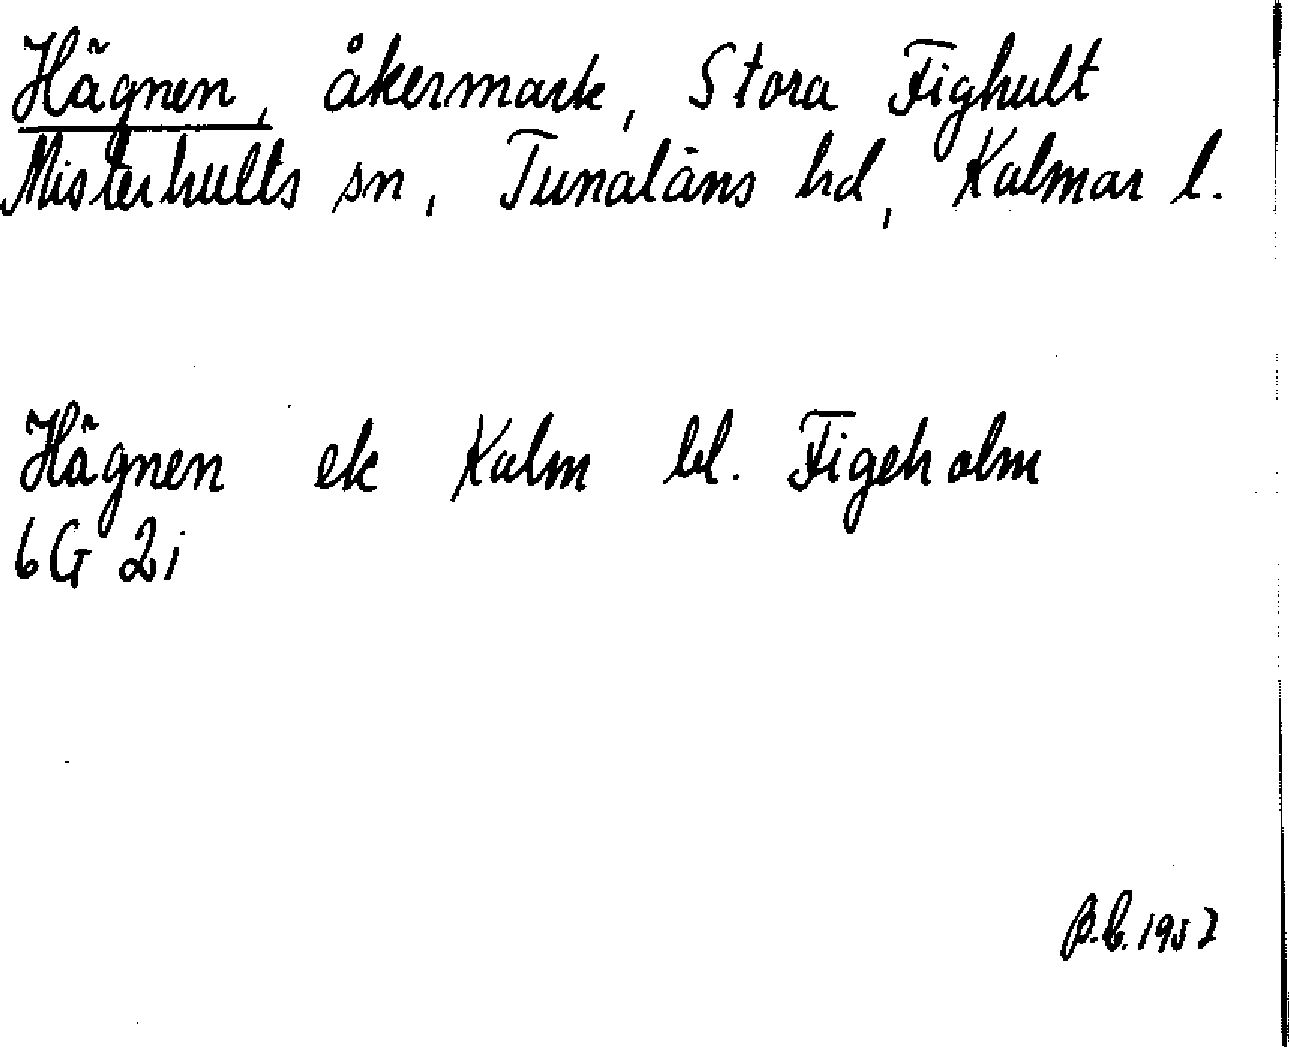 Hägnen, åkermark, Stora Fighult
Misterhults sn, Tunaläns hd, Kalmar l.
Hägnen ek Kalm bl. Figeholm
6G 2i
B.C. 1957